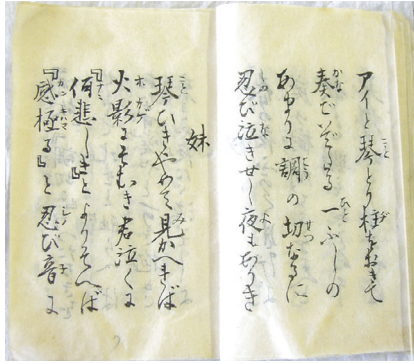 アイと琴とり柱をおきて
奏でいでたる一ふしの
あまりに調の切なるに
忍び泣きせし夜もありき
妹
琴ひきやめて見かへれば
火影にそむき君泣くに
『何悲しき』とよりそへば
『感極る』と忍び音に